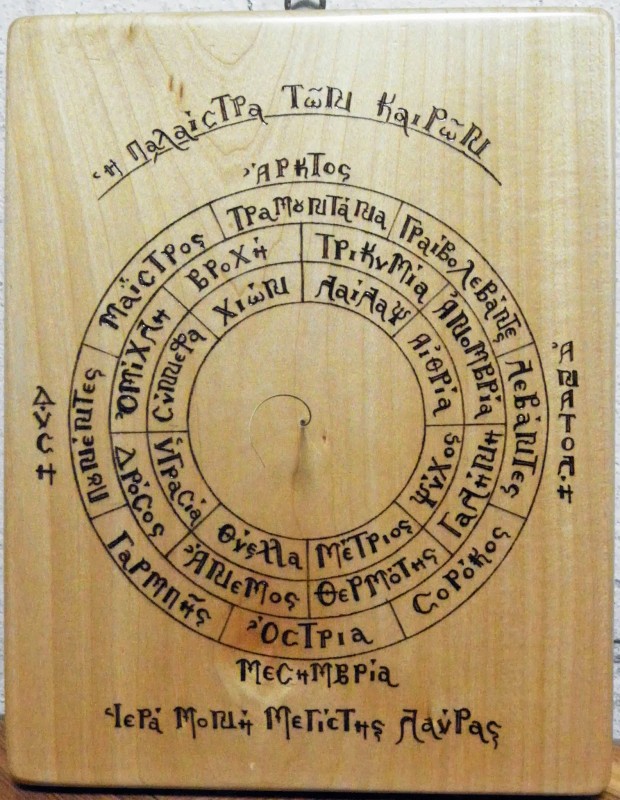 Ἡ Παλαίστρα Τῶν Καιρῶν
Ἄρκτος
Τραμουντάνα
Γραίβολεβάντε
Λεβάντες
Σορόκος
Ὄστρια
Γαρμπῆς
Πουνέντες
Μαΐστρος
Τρικυμία
Ἀνομβρία
Γαλήνη
Θερμότης
Ἄνεμος
Δρόσος
Ὀμίχλη
Βροχή
Λαίλαψ
Αἰθρία
Ψύχος
Μέτριος
Θύελλα
Ὑγρασία
Σύννεφα
Χιών
Ἀνατολή
Δύση
Μεσημβρία
Ἱερά Μονή Μεγίστης Λαύρας